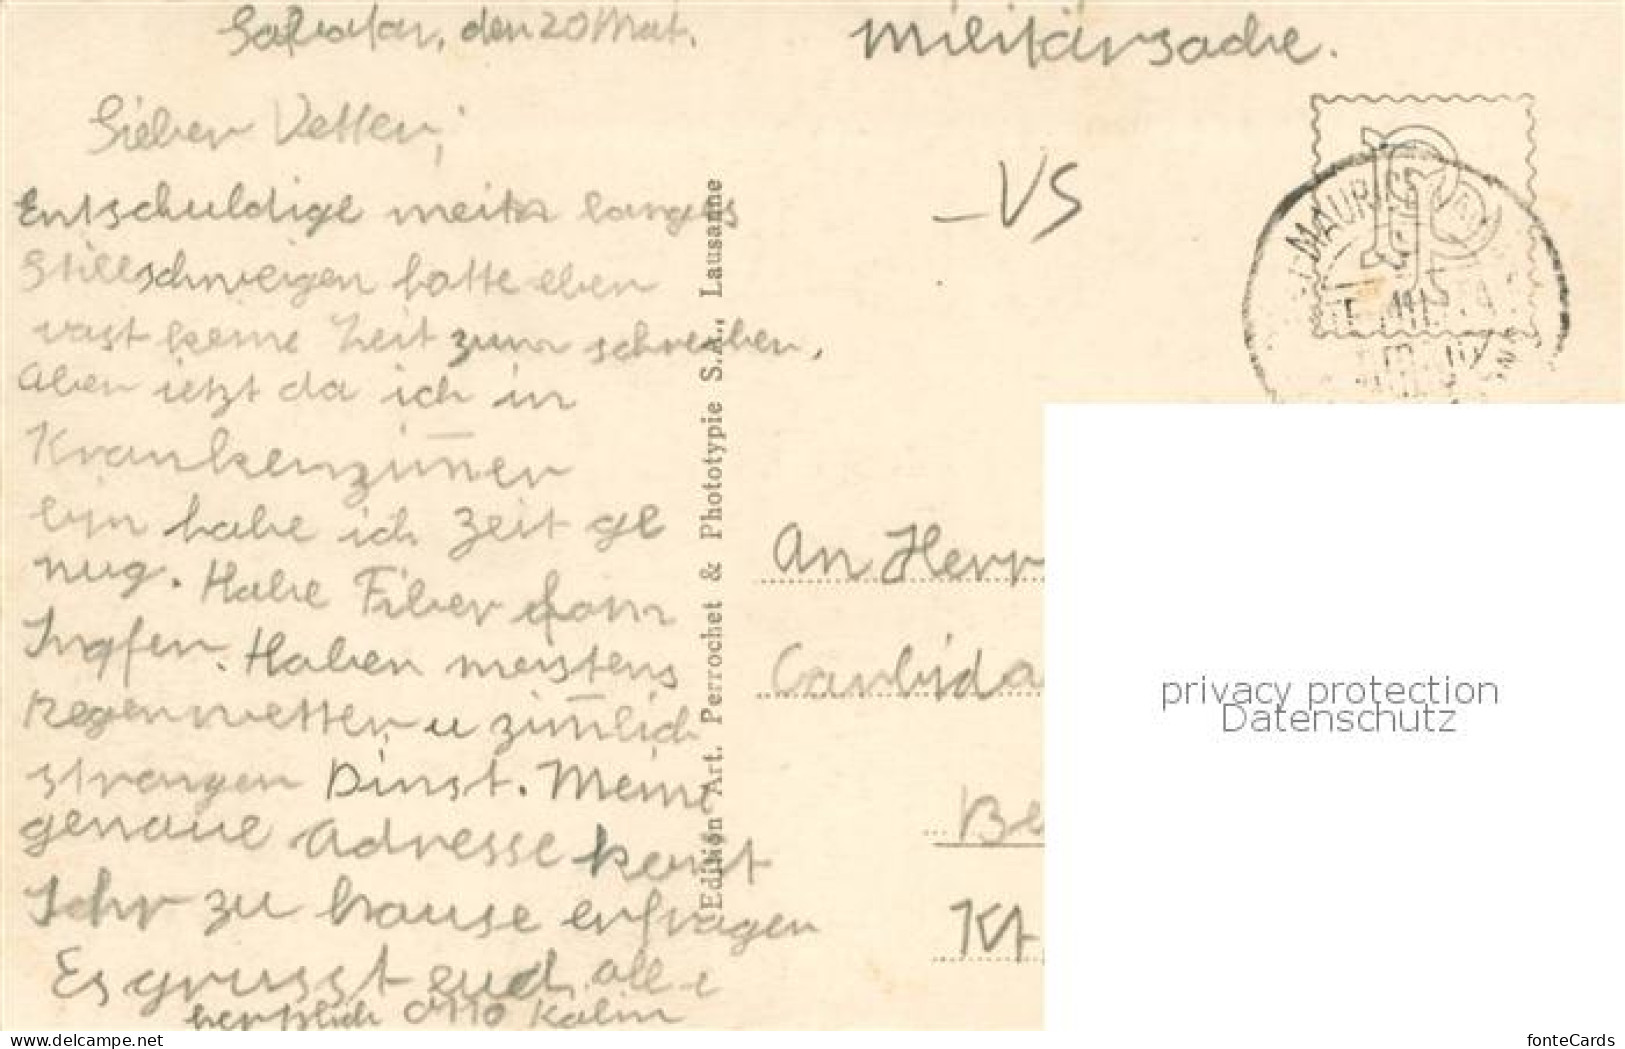 den 20 Mai.
Militärsache.
Lieber Vetter,
Entschuldige mein langes
Stillschweigen hatte eben
vast keine Zeit zum schreiben,
Aber jetzt da ich in
Krankenzim̅er
bin habe ich Zeit ge
nug. Habe Fiber fom
Impfen. Haben meistens
Regenwetter u zim̅lich
strangen Dinst. Meine
genaue Adresse könt
Ihr zu hause erfragen
Es grüsst euch alle
herzlich
-VS
MAURICE
Edition Art. Perrochet & Phototypie S.A., Lausanne
An Herr
Be
Kt.
privacy protection
Datenschutz
www.delcampe.net
fonteCards